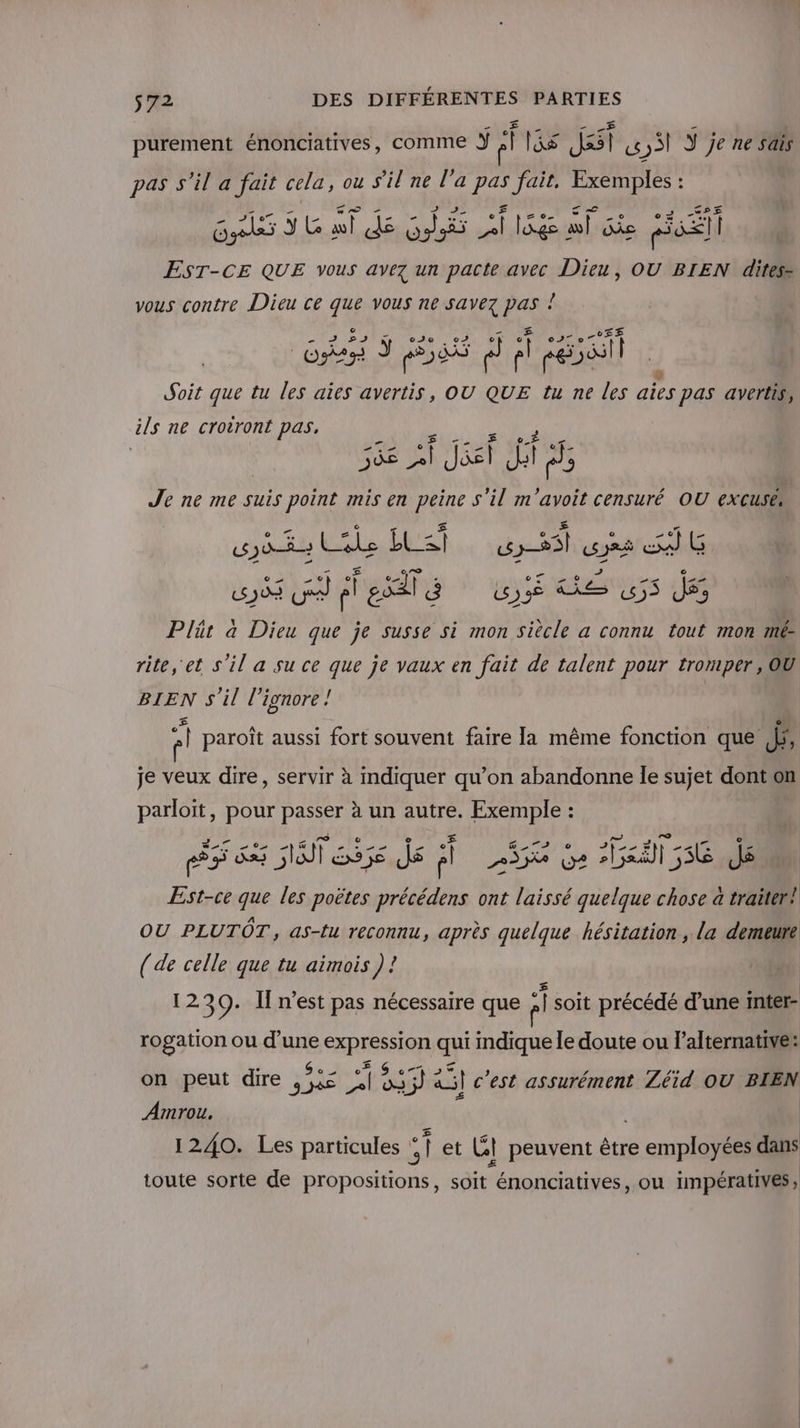 572 DES DIFFÉRENTES PARTIES
purement énonciatives, comme لَا أَدْرِى أَفَعَلَ هٰذَا أَمْ لَا je ne sais
pas s'il a fait cela, ou s'il ne l'a pas fait. Exemples :
أَاتَّخَذْتُمْ عِنْدَ ٱللّٰهِ عَهْدًا أَمْ تَقُولُونَ عَلَى ٱللّٰهِ مَا لَا تَعْلَمُونَ
EST-CE QUE vous avez un pacte avec Dieu, OU BIEN dites-
vous contre Dieu ce que vous ne savez pas !
أَأَنْذَرْتَهُمْ أَمْ لَمْ تُنْذِرْهُمْ لَا يُؤْمِنُونَ
Soit que tu les aies avertis, OU QUE tu ne les aies pas avertis,
ils ne croiront pas.
وَلَمْ أُبَلْ أَعَذَلَ أَمْ عَذَرَ
Je ne me suis point mis en peine s'il m'avoit censuré OU excusé.
يَا لَيْتَ شِعْرِى أَدَهْرِى أَحَاطَ عِلْمًا بِقَدْرِى
وَهَلْ دَرَى كُنْهَ غَوْرِى فِى ٱلْخَدْعِ أَمْ لَيْسَ يَدْرِى
Plût à Dieu que je susse si mon siècle a connu tout mon mé-
rite, et s'il a su ce que je vaux en fait de talent pour tromper, OU
BIEN s'il l'ignore !
أَمْ paroît aussi fort souvent faire la même fonction que بَلْ,
je veux dire, servir à indiquer qu'on abandonne le sujet dont on
parloit, pour passer à un autre. Exemple :
هَلْ غَادَرَ ٱلشُّعَرَاءُ مِنْ مُتَرَدَّمِ أَمْ هَلْ عَرَفْتَ ٱلدَّارَ بَعْدَ تَوَهُّمِ
Est-ce que les poëtes précédens ont laissé quelque chose à traiter !
OU PLUTÔT, as-tu reconnu, après quelque hésitation, la demeure
(de celle que tu aimois) !
1239. Il n'est pas nécessaire que أَمْ soit précédé d'une inter-
rogation ou d'une expression qui indique le doute ou l'alternative :
on peut dire إِنَّهُ لَزَيْدٌ أَمْ عَمْرٌو c'est assurément Zéïd OU BIEN
Amrou.
1240. Les particules أَوْ et إِمَّا peuvent être employées dans
toute sorte de propositions, soit énonciatives, ou impératives,